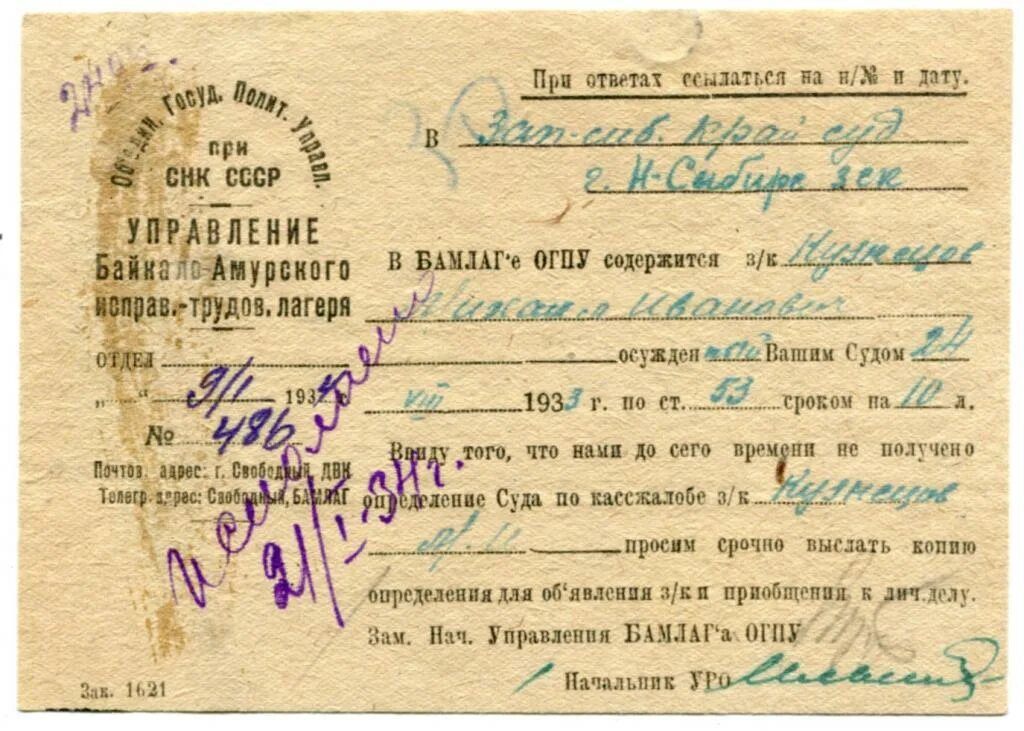 Об'един. Госуд. Полит. Управл.
при
СНК СССР
УПРАВЛЕНИЕ
Байкало-Амурского
исправ.-трудов. лагеря
ОТДЕЛ
„ “ 9/I 1934 г.
№ 486
Почтов. адрес: г. Свободный, ДВК
Телегр. адрес: Свободный, БАМЛАГ
Зак. 1621
При ответах ссылаться на н/№ и дату.
В Зап-сиб. край суд
г. Н-Сибирс
В БАМЛАГ'е ОГПУ содержится з/к Кузнецов
Михаил Иванович
осужденный Вашим Судом 24
VIII 1933 г. по ст. 53 сроком на 10 л.
Ввиду того, что нами до сего времени не получено
определение Суда по кассжалобе з/к Кузнецов
просим срочно выслать копию
определения для об'явления з/к и приобщения к лич. делу.
Зам. Нач. Управления БАМЛАГ'а ОГПУ
Начальник УРО
21/I-34 г.